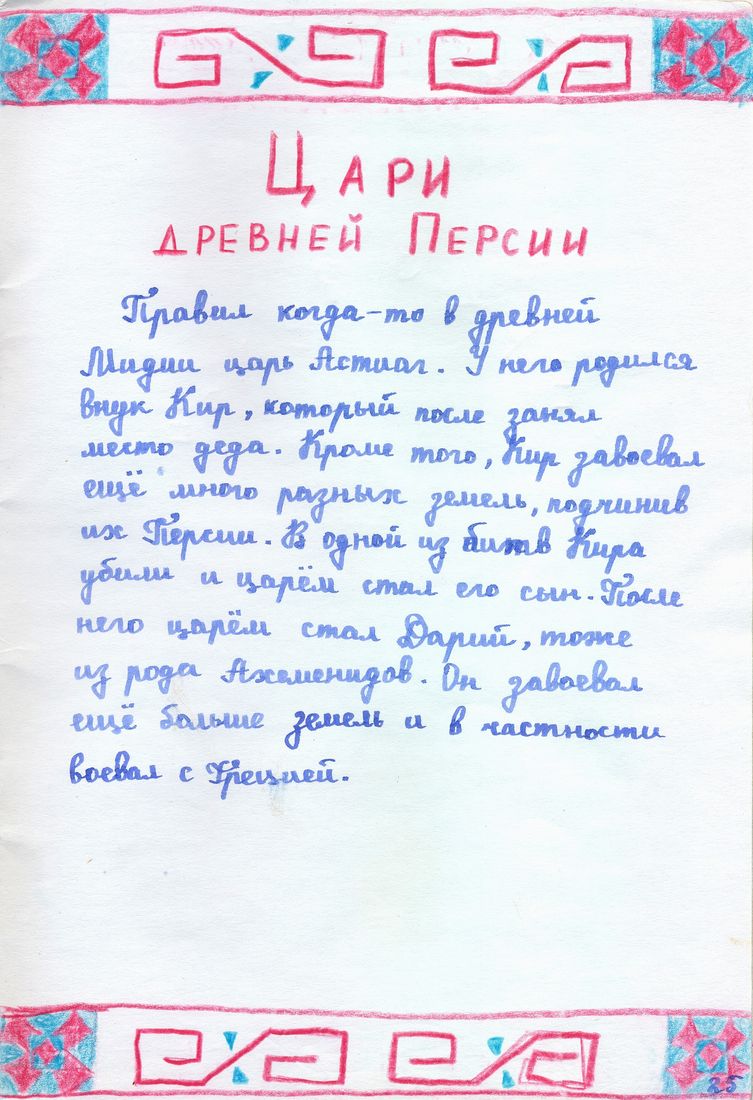 Цари
древней Персии
Правил когда-то в древней
Мидии царь Астиаг. У него родился
внук Кир, который после занял
место деда. Кроме того, Кир завоевал
ещё много разных земель, подчинив
их Персии. В одной из битв Кира
убили и царём стал его сын. После
него царём стал Дарий, тоже
из рода Ахеменидов. Он завоевал
ещё больше земель и в частности
воевал с Грецией.
25